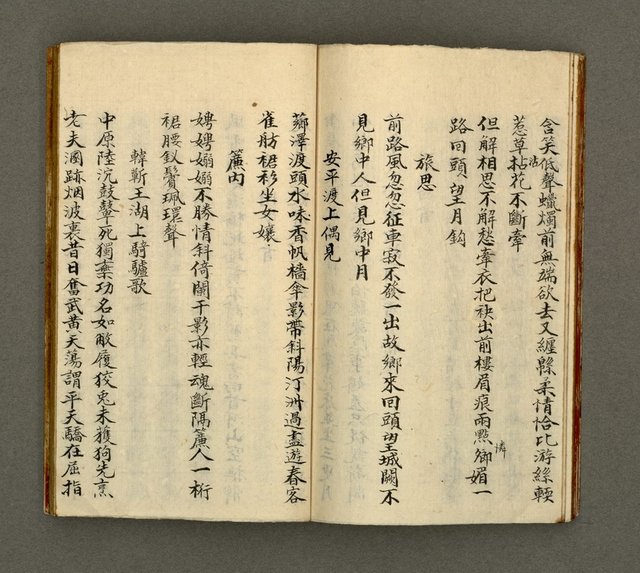 含笑低聲蠟燭前無端欲去又纏緜柔情恰比游絲輭
惹草拈花不斷牽
沾
但解相思不解愁牽衣把袂出前樓眉痕兩點卿媚一
憐
路回頭望月鈎
旅思
前路風忽忽征車寂不發一出故鄉來回頭望城闕不
見鄉中人但見鄉中月
安平渡上偶見
薌澤渡頭水味香帆檣傘影帶斜陽汀洲過盡遊春客
雀舫裙衫坐女孃
簾內
娉娉嫋嫋不勝情斜倚闌干影亦輕魂斷隔簾人一桁
裙腰釵鬢珮環聲
韓蘄王湖上騎驢歌
中原陸沉鼓鼙死獨棄功名如敝履狡兎未獲狗先烹
老夫溷跡烟波裏昔日奮武黃天蕩謂平天驕在屈指